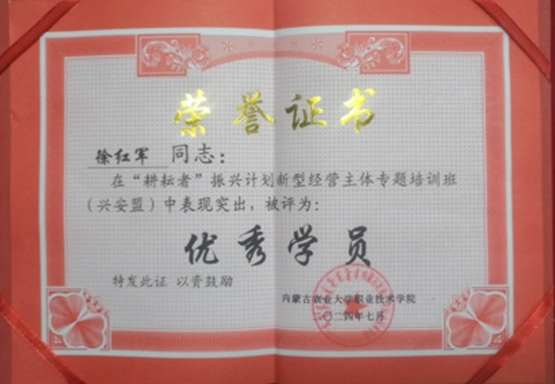 荣誉证书
徐红军 同志：
在“耕耘者”振兴计划新型经营主体专题培训班
（兴安盟）中表现突出，被评为：
优秀学员
特发此证 以资鼓励
内蒙古农业大学职业技术学院
二〇二四年七月